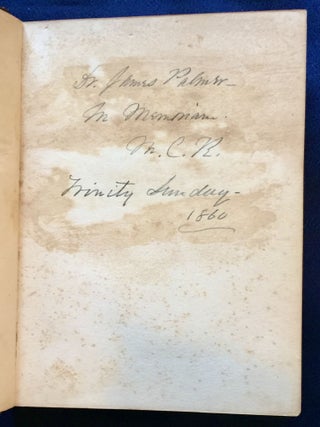 Dr. James Palmer –
In Memoriam.
M. C. K.
Trinity Sunday –
1860